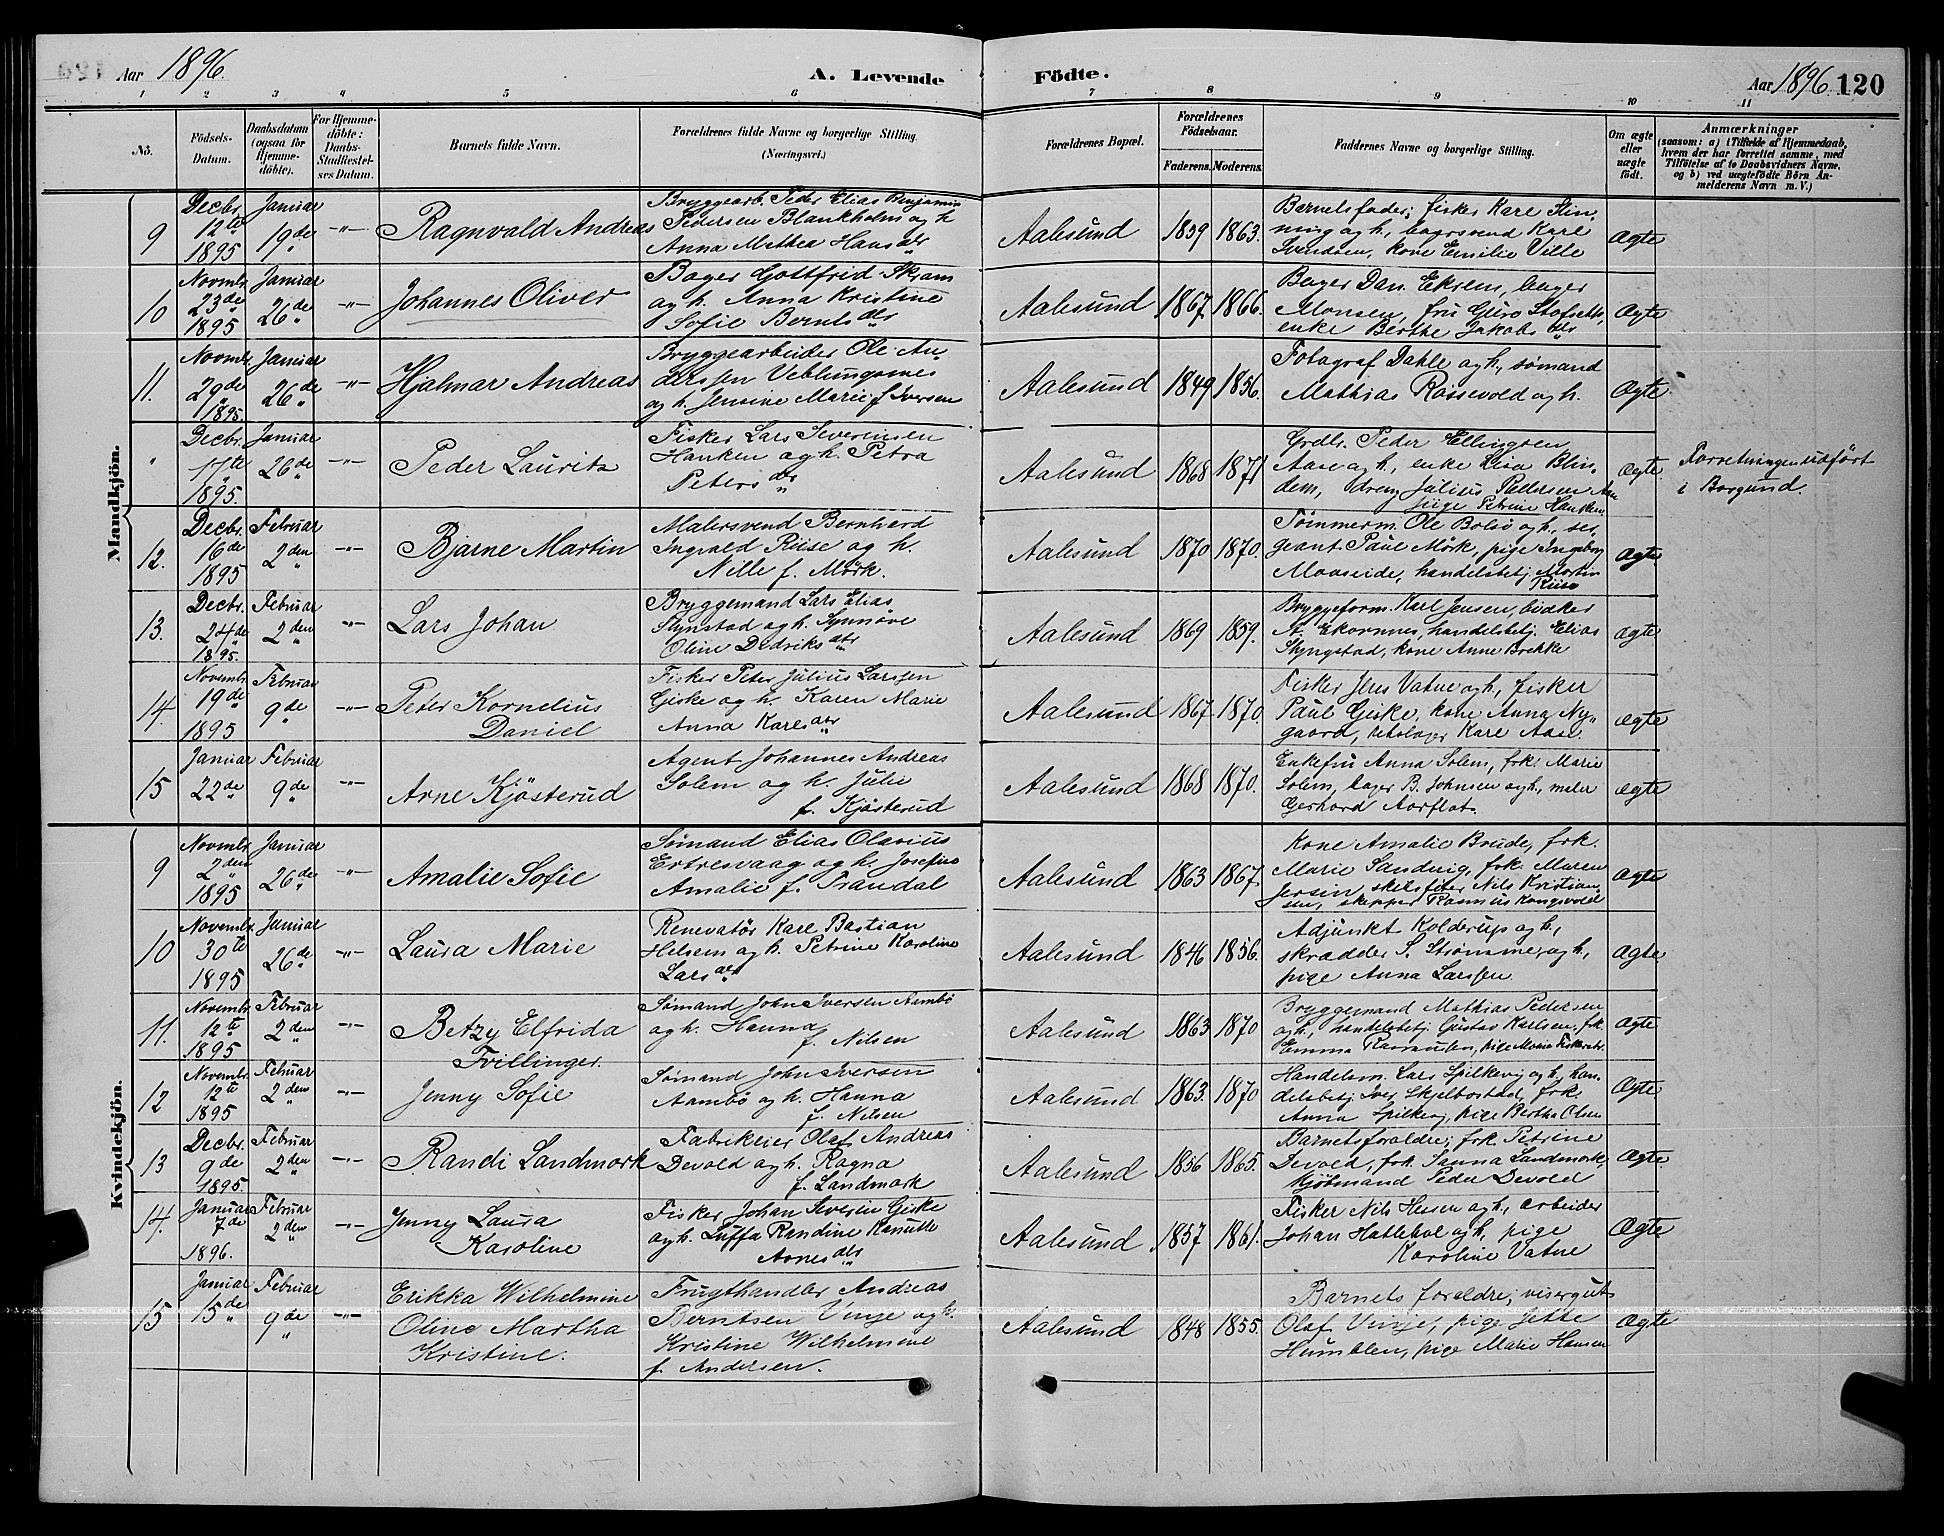 Aar 1896. A. Levende Födte. Aar 1896 120
1 2 3 4 5 6 7 8 8 9 10 11
No. Födsels-Datum. Daabsdatum (ogsaa for Hjemmedöbte). For Hjemmedöbte: Daabs-Stadfæstelses Datum. Barnets fulde Navn. Forældrenes fulde Navne og borgerlige Stilling. (Næringsvei.) Forældrenes Bopæl. Forældrenes Födselsaar. Faderens. Moderens. Faddernes Navne og borgerlige Stilling. Om ægte eller uægte födt. Anmærkninger (saasom: a) i Tilfælde af Hjemmedaab, hvem der har forrettet samme, med Tilföielse af to Daabsvidners Navne, og b) ved uægtefödte Börn Anmelderens Navn m. V.)
Mandkjön.
9 Decbr. 12te 1895 Januar 19de -"- Ragnvald Andreas
Bryggearb. Peder Elias Benjamin
Pedersen Blankholm og h.
Anna Mathea Hansdtr
Aalesund 1859 1863.
Barnets fader; fisker Kare Stin-
ning og h., bagersvend Kare
Svendsen, kone Emilie Ville
Ægte
10 Novmbr. 23de 1895 Januar 26de -"- Johannes Oliver
Bager Gottfrid Skram
og h. Anna Kristine
Sofie Berntsdtr
Aalesund 1867 1866.
Bager Dan. Ekrem, bager
Monsen, fru Guro
enke Berthe Jakobsdtr
Ægte
11. Novmbr. 29de 1895 Januar 26de -"- Hjalmar Andreas
Bryggearbeider Ole An-
derssen Veblungsnes
og h. Jensine Marie f. Iversen
Aalesund 1849 1856.
Fotograf Dahle og h., sømand
Mathias Røssevold og h.
Ægte
" Decbr. 17te 1895. Januar 26de -"- Peder Laurits
Fisker Lars Severinsen
Hanken og h. Petra
Petersdtr
Aalesund 1868 1871
Grdbr. Peder Ellingsen
Aase og h., enke Lisa Blin-
dem, dreng Julius Pedersen
pige Petrine Hanken
Ægte. Forretningen udført
i Borgund.
12. Decbr. 16de 1895 Februar 2den -"- Bjarne Martin
Malersvend Bernhard
Ingvald Riise og h.
Nille f. Mørk.
Aalesund 1870 1870.
Tømmerm. Ole Bolsø og h., ser-
geant Paul Mørk, pige Ingeborg
Maaseide, handelsbetj. Martin
Riise
Ægte
13. Decbr. 24de 1895. Februar 2den -"- Lars Johan
Bryggemand Lars Elias
Slynstad og h. Synnøve
Oline Didriksdtr
Aalesund 1869 1859.
Bryggeform. Karl Jensen, bødker
A. Ekornnes, handelsbetj. Elias
Slyngstad, kone Anne Brekke
Ægte
14. Novembr. 19de 1895 Februar 9de -"- Peter Kornelius
Daniel
Fisker Peter Julius Larssen
Giske og h. Karen Marie
Anna Karesdtr
Aalesund 1867 1870.
Fisker Jens Vatne og h., fisker
Paul Giske, kone Anna Ny-
gaard, Kare Aase
ægte
15 Januar 22de Februar 9de -"- Arne Kjøsterud
Agent Johannes Andreas
Solem og h. Julie
f. Kjøsterud
Aalesund 1868 1870.
Enkefru Anna Solem, frk. Marie
Solem, bager B. Johnsen og h., maler
Gerhard Aarflot.
ægte
Kvindekjön.
9 Novmbr. 2den 1895 Januar 26de -"- Amalie Sofie
Sømand Elias Olarius
Ertresvaag og h. Josefine
Amalie f. Trandal
Aalesund 1863 1867
Kone Amalie Brude, frk.
Marie Sandvig, frk. Maren
Jersin, Nils Kristian-
sen, skipper Rasmus Kongsvold
Ægte
10 Novembr. 30te 1895 Januar 26de -"- Laura Marie
Renovatør Kare Bastian
Helsem og h. Petrine Karoline
Larsdtr
Aalesund 1846 1856.
Adjunkt Kolderup og h.,
skrædder S. Strømmen og h.,
pige Anna Larssen
Ægte
11. Novembr. 12te 1895 Februar 2den -"- Betzy Elfrida
Sømand John Iversen Aambø
og h. Hanna
f. Nilsen
Aalesund 1863 1870
Bryggemand Mathias Pedersen
og h., handelsbetj. Gustav Karlsen, frk.
Emma Rasmussen, pige Marie
Ægte
Tvillinger.
12 Novembr. 12te 1895 Februar 2den -"- Jenny Sofie
Sømand John Iversen
Aambø og h. Hanna
f. Nilsen
Aalesund 1863. 1870
Handelsm. Lars Spilkevig og h., han-
delsbetj. Iver Skjelbostad, frk.
Anna Spilkevig, pige Bertha Olsen
Ægte
13 Decbr. 9de 1895. Februar 2den -"- Randi Landmark
Fabrikeier Olaf Andreas
Devold og h. Ragna
f. Landmark
Aalesund 1856 1865.
Barnets forældre; frk. Petrine
Devold, frk. Sanna Landmark,
kjøbmand Peder Devold
Ægte
14. Januar 7de 1896. Februar 2den -"- Jenny Laura
Karoline
Fisker Johan Severin Giske
og h. Luffa Randine Kanutte
Arnesdtr
Aalesund 1857 1861.
Fisker Nils Hessen og h., arbeider
Johan Hattehol og h., pige
Karoline Vatne
Ægte
15 Januar 15de Februar 9de -"- Erikka Wilhelmine
Oline Martha
Kristine.
Frugthandler Andreas
Berntsen Vinje og h.
Kristine Wilhelmine
f. Andersen.
Aalesund 1848 1855.
Barnets foraldre; visergut
Olaf Vinje, pige Jette
Humblen, pige Marie Hansen
Ægte